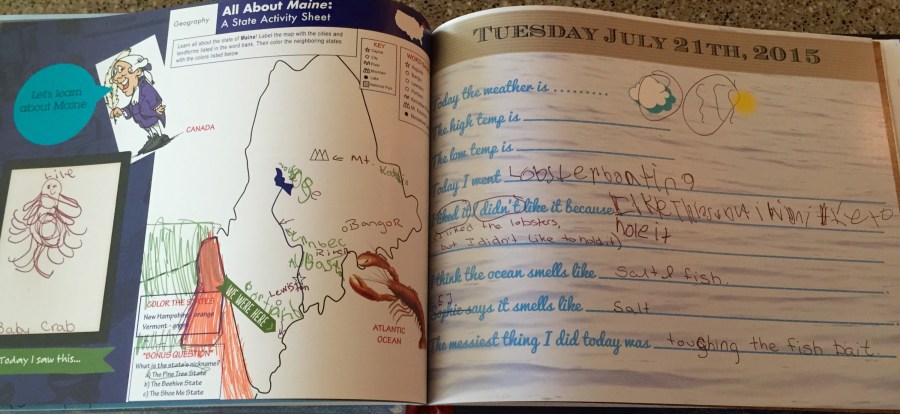 Geography
All About Maine:
A State Activity Sheet
Learn all about the state of Maine! Label the map with the cities and
landforms listed in the word bank. Then color the neighboring states
with the colors listed below.
KEY
Capital
City
River
Mountain
Lake
National Park
Let's learn
about Maine
CANADA
Baby Crab
Today I saw this...
Mt.
Bangor
River
Lewiston
WE WERE HERE
ATLANTIC
OCEAN
COLOR THE STATES
New Hampshire - orange
Vermont -
*BONUS QUESTION*
What is the state's nickname?
a) The Pine Tree State
b) The Beehive State
c) The Show Me State
TUESDAY JULY 21TH, 2015
Today the weather is .........
The high temp is
The low temp is
Today I went Lobsterboating
I liked it / didn't like it because
I liked the lobsters,
but I didn't like to hold it)
I think the ocean smells like salt & fish.
says it smells like salt
The messiest thing I did today was touching the fish bait.